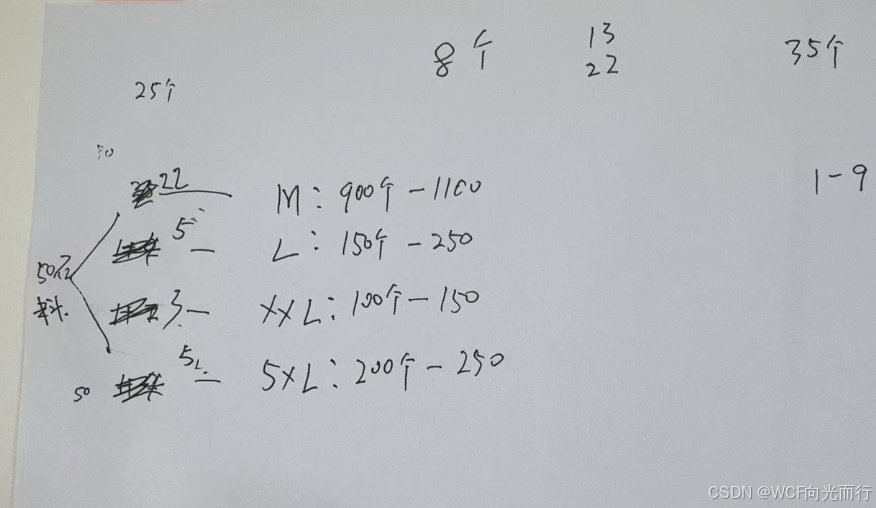 8个 13 35个
22
25个
50
22 M：900个-1100
1-9
5 L：150个-250
50亿
料.
3 XXL：100个-150
50 5 5XL：200个-250
CSDN @WCF向光而行